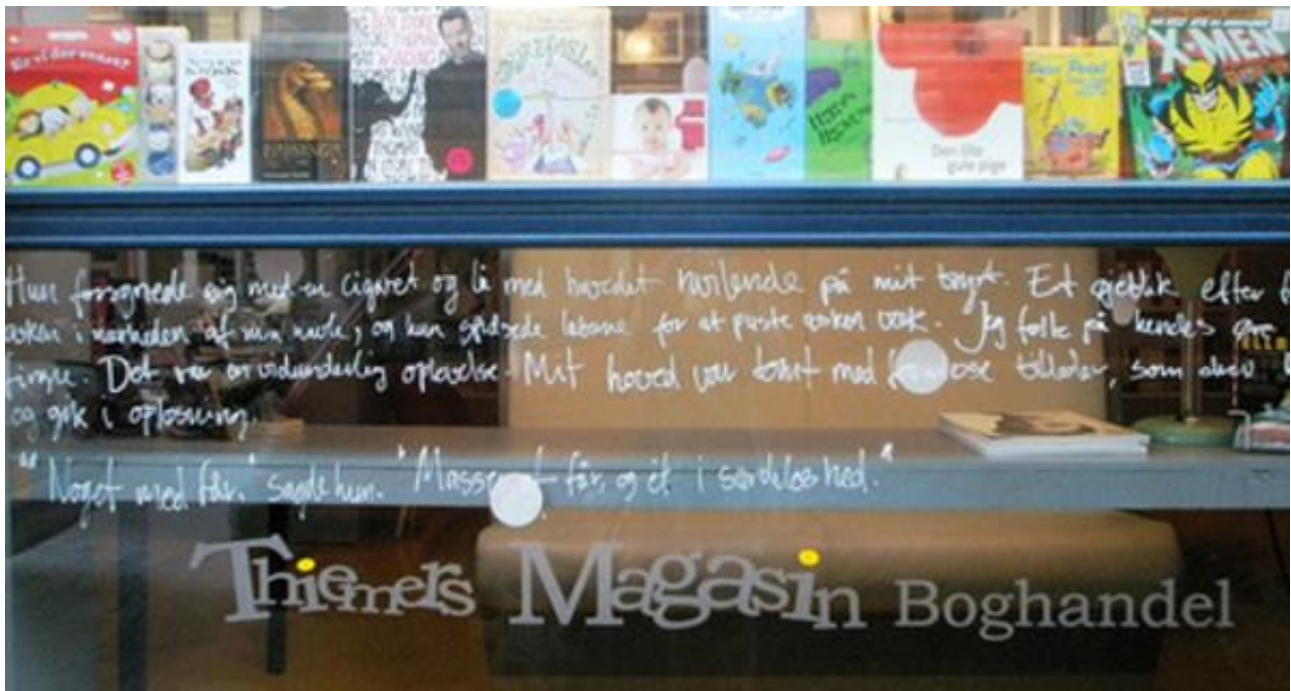 Er vi der snart?
DEN STORE
THOMAS
WINDING
Den lille
gule pige
X-MEN
Hun forsynede sig med en cigaret og lå med hovedet hvilende på mit bryst. Et øjeblik efter
asken i nærheden af min navle, og hun spidsede læberne for at puste asken væk. Jeg følte på hendes øre
fingre. Det var en vidunderlig oplevelse. Mit hoved var tomt med billeder, som
og gik i opløsning.
"Noget med får." sagde hun. "Masser af får, og ét i særdeleshed."
Thiemers Magasin Boghandel